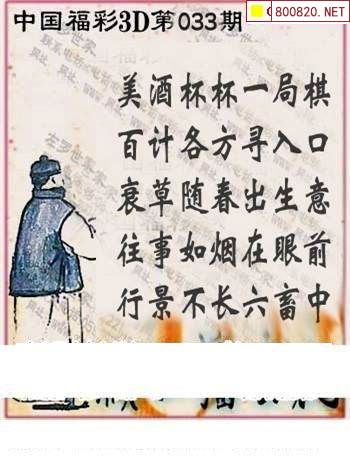 中国福彩3D第033期
800820.NET
美酒杯杯一局棋
百计各方寻入口
衰草随春出生意
往事如烟在眼前
行景不长六畜中